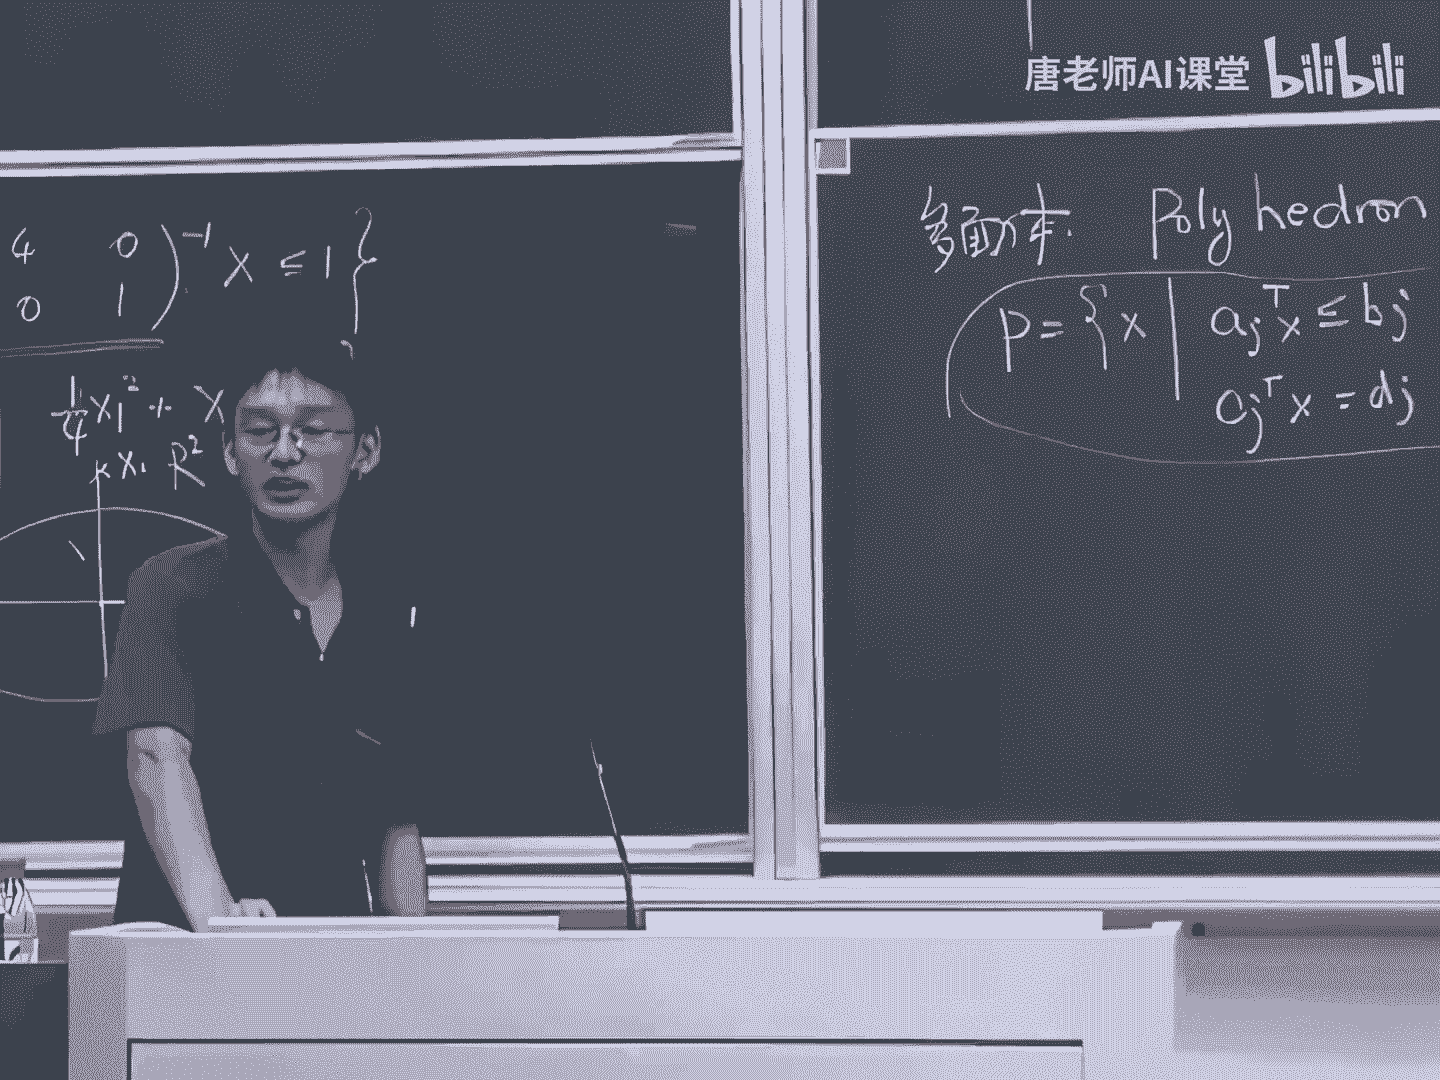 唐老师AI课堂 bilibili
4 0
0 1 )⁻¹ x ≤ 1 }
1/4 x₁² + x
x₁ R²
多面体. Polyhedron
P = { x | aⱼᵀx ≤ bⱼ
cⱼᵀx = dⱼ